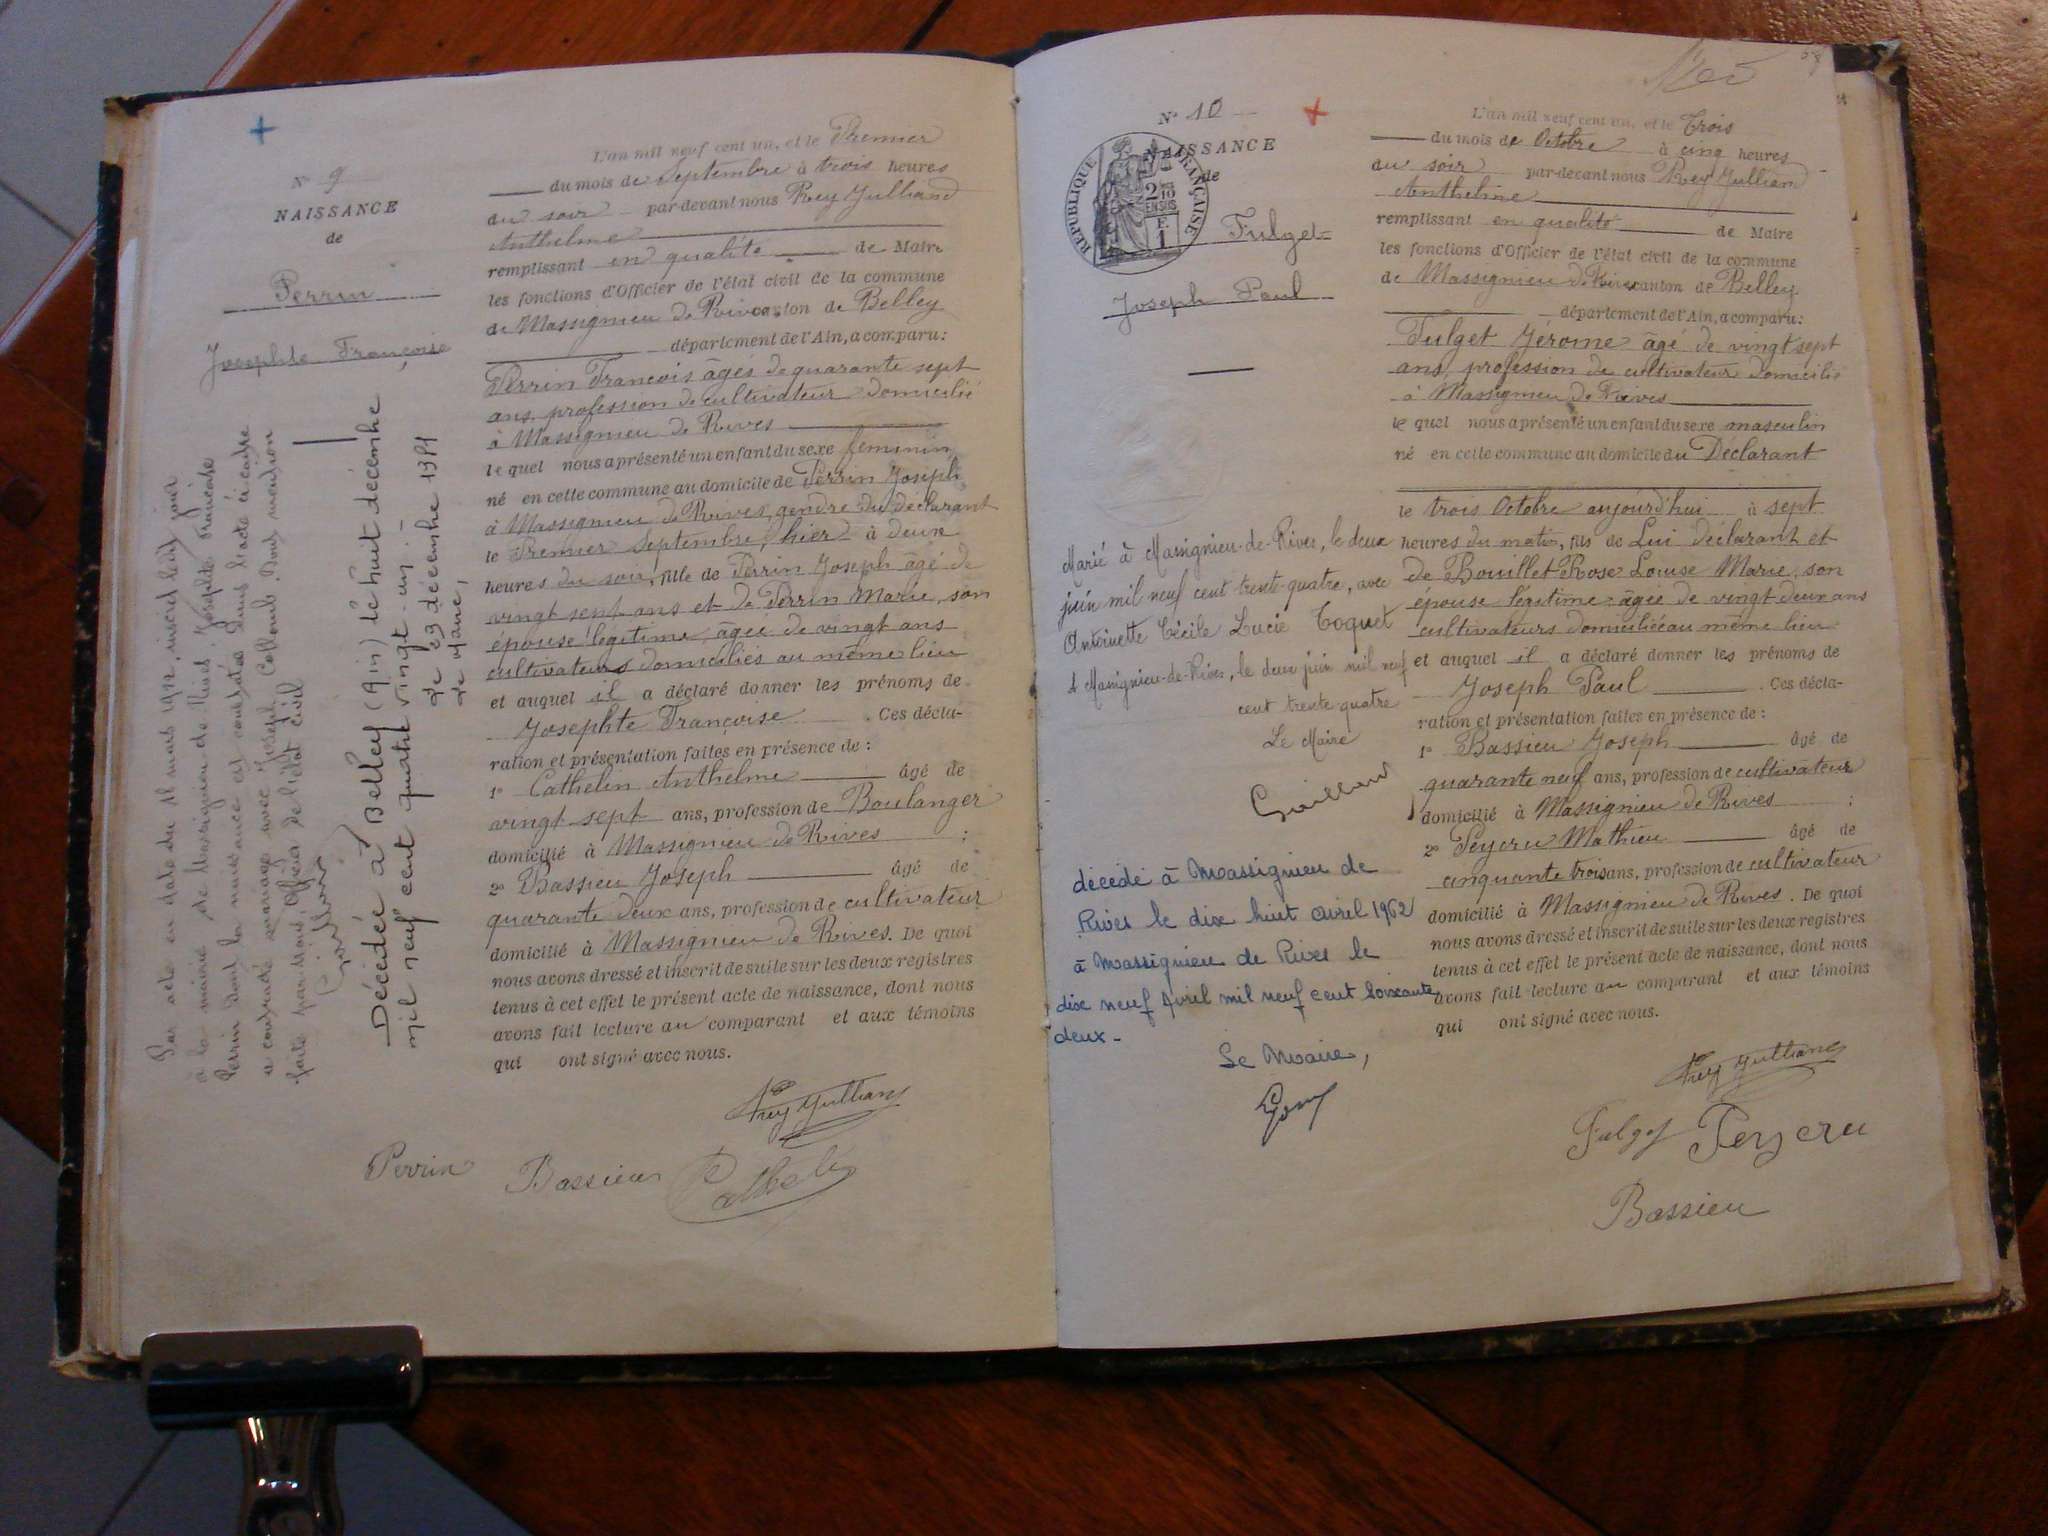 N° 9
NAISSANCE
de
Perrin
Josephte Françoise
L'an mil neuf cent un, et le Premier
du mois de Septembre à trois heures
du soir par-devant nous Rey Julliand
Anthelme
remplissant en qualité de Maire
les fonctions d'Officier de l'état civil de la commune
de Massignieu de Rives canton de Belley
département de l'Ain, a comparu:
Perrin François âgés de quarante sept
ans, profession de cultivateur domicilié
à Massignieu de Rives
le quel nous a présenté un enfant du sexe féminin
né en cette commune au domicile de Perrin Joseph
à Massignieu de Rives, gendre du déclarant
le Premier Septembre, hier à deux
heures du soir, fille de Perrin Joseph âgé de
vingt sept ans et de Perrin Marie, son
épouse légitime, âgée de vingt ans
cultivateurs domiciliés au même lieu
et auquel il a déclaré donner les prénoms de
Josephte Françoise . Ces décla-
ration et présentation faites en présence de :
1° Cathelin Anthelme âgé de
vingt sept ans, profession de Boulanger
domicilié à Massignieu de Rives ;
2° Bassieu Joseph âgé de
quarante deux ans, profession de cultivateur
domicilié à Massignieu de Rives. De quoi
nous avons dressé et inscrit de suite sur les deux registres
tenus à cet effet le présent acte de naissance, dont nous
avons fait lecture au comparant et aux témoins
qui ont signé avec nous.
Rey Jullian
Perrin Bassieu Cathelin
Par acte en date du 11 mars 1922, inscrit le dit jour
à la mairie de Massignieu de Rives, Josephte Françoise
Perrin dont la naissance est constatée dans l'acte ci contre
a contracté mariage avec Joseph Colomb. Dont mention
faite par nous, Officier de l'état civil
Décédée à Belley (Ain) le huit décembre
mil neuf cent quatre vingt-un.
le 23 décembre 1981
le Maire,
N° 10
NAISSANCE
de
RÉPUBLIQUE FRANÇAISE
2/10 EN SUS
F. 1
Fulget
Joseph Paul
L'an mil neuf cent un, et le Trois
du mois de Octobre à cinq heures
du soir par-devant nous Rey Jullian
Anthelme
remplissant en qualité de Maire
les fonctions d'Officier de l'état civil de la commune
de Massignieu de Rives canton de Belley
département de l'Ain, a comparu:
Fulget Jérome âgé de vingt sept
ans, profession de cultivateur domicilié
à Massignieu de Rives
le quel nous a présenté un enfant du sexe masculin
né en cette commune au domicile du Déclarant
le trois Octobre aujourd'hui à sept
heures du matin, fils de Lui déclarant et
de Bouillet Rose Louise Marie, son
épouse légitime âgée de vingt deux ans
cultivateurs domiciliée au même lieu
et auquel il a déclaré donner les prénoms de
Joseph Paul . Ces décla-
ration et présentation faites en présence de :
1° Bassieu Joseph âgé de
quarante neuf ans, profession de cultivateur
domicilié à Massignieu de Rives ;
2° Peycru Mathieu âgé de
cinquante trois ans, profession de cultivateur
domicilié à Massignieu de Rives. De quoi
nous avons dressé et inscrit de suite sur les deux registres
tenus à cet effet le présent acte de naissance, dont nous
avons fait lecture au comparant et aux témoins
qui ont signé avec nous.
Rey Jullian
Fulget Peycru
Bassieu
Marié à Massignieu-de-Rives, le deux
juin mil neuf cent trente quatre, avec
Antoinette Cécile Lucie Toquet
à Massignieu-de-Rives, le deux juin mil neuf
cent trente quatre
Le Maire
décédé à Massignieu de
Rives le dix huit avril 1962
à Massignieu de Rives le
dix neuf Avril mil neuf cent soixante
deux-
Le Maire,